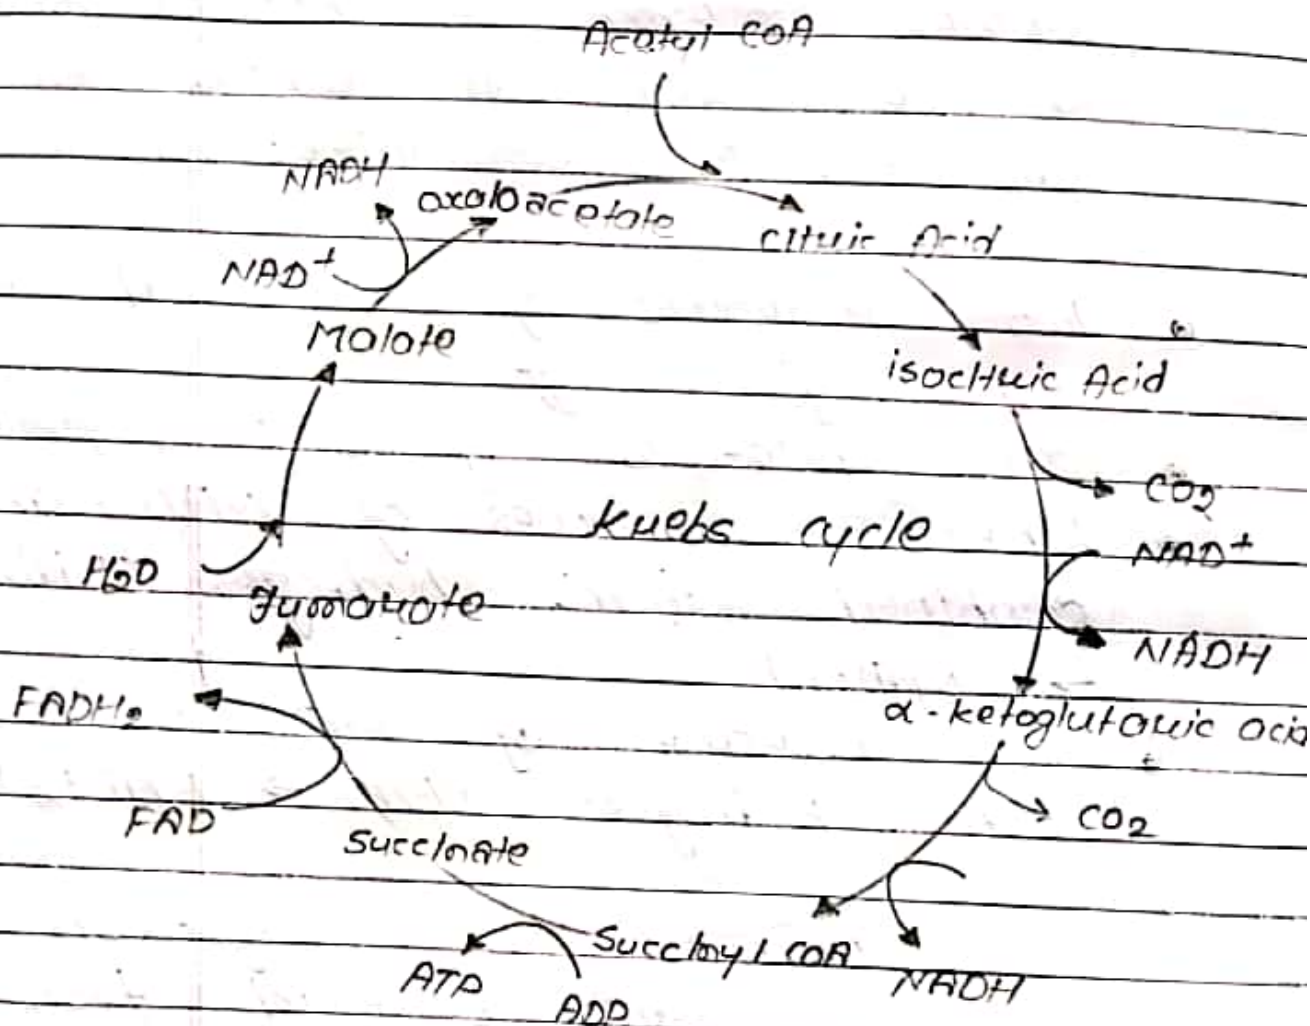 Acetyl COA
NADH
oxaloacetate
citric Acid
NAD+
Malate
isocitric Acid
CO2
Krebs cycle
NAD+
H2O
Fumarate
NADH
FADH2
α-ketoglutaric acid
FAD
CO2
Succinate
Succinyl COA
ATP
NADH
ADP